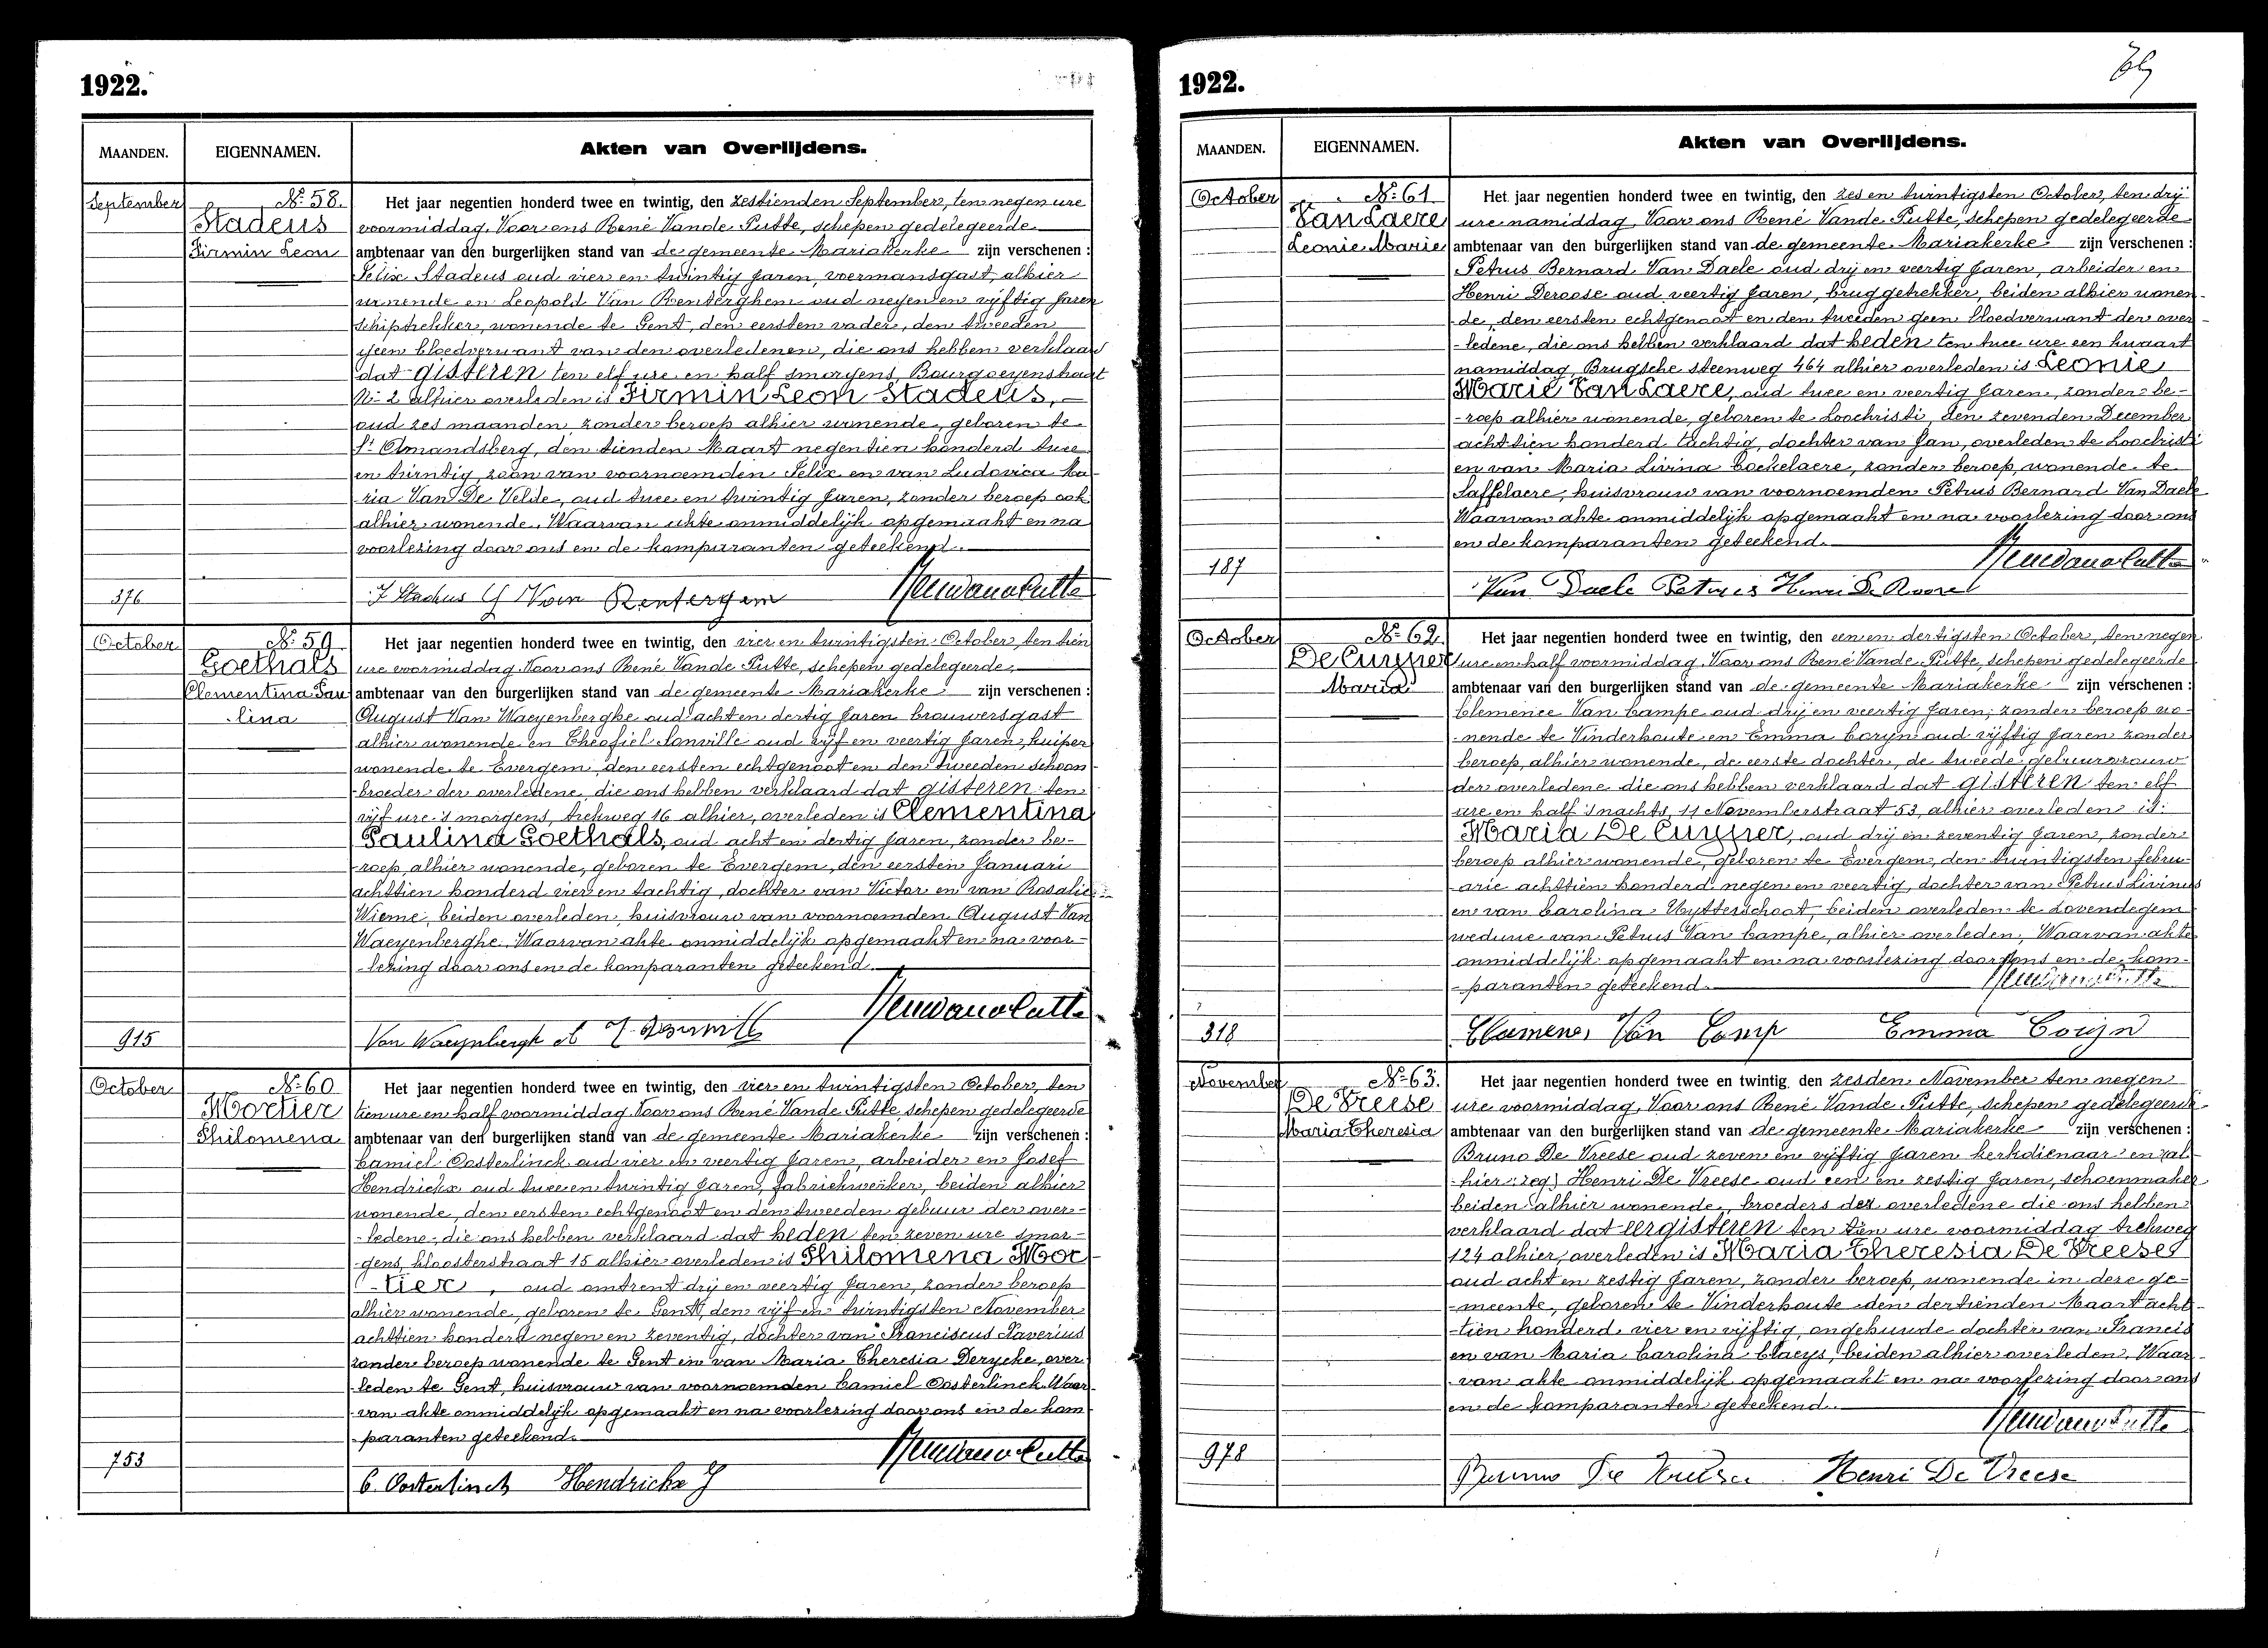 1922.
MAANDEN.
EIGENNAMEN.
Akten van Overlijdens.
September
№ 58.
Stadeus
Firmin Leon
Het jaar negentien honderd twee en twintig, den zestienden September, ten negen ure
voormiddag, Voor ons René Vande Putte, schepen gedelegeerde
ambtenaar van den burgerlijken stand van de gemeente Mariakerke zijn verschenen :
Felix Stadeus oud vier en twintig jaren, voermansgast, alhier
wonende en Leopold Van Renterghem oud negen en vijftig jaren
schiptrekker, wonende te Gent, den eersten vader, den tweeden
geen bloedverwant van den overledenen, die ons hebben verklaard
dat gisteren ten elf ure en half smorgens, Bourgoeyenstraat
№ 2 alhier overleden is Firmin Leon Stadeus,
oud zes maanden, zonder beroep alhier wonende, geboren te
St Amandsberg, den tienden Maart negentien honderd twee
en twintig, zoon van voornoemden Felix en van Ludovica Ma-
ria Van De Velde, oud twee en twintig jaren, zonder beroep ook
alhier wonende. Waarvan akte onmiddelijk opgemaakt en na
voorlezing door ons en de komparanten geteekend.
376
F Stadeus
Van Rentergem
October
№ 59
Goethals
Clementina Pau
lina
Het jaar negentien honderd twee en twintig, den vier en twintigsten October, ten tien
ure voormiddag Voor ons René Vande Putte, schepen gedelegeerde
ambtenaar van den burgerlijken stand van de gemeente Mariakerke zijn verschenen :
August Van Waeyenberghe oud acht en dertig jaren brouwersgast
alhier wonende en Theofiel Sonville oud vijf en veertig jaren, kuiper
wonende te Evergem, den eersten echtgenoot en den tweeden schoon-
broeder der overledene, die ons hebben verklaard dat gisteren ten
vijf ure 's morgens, trekweg 16 alhier, overleden is Clementina
Paulina Goethals, oud acht en dertig jaren, zonder be-
-roep, alhier wonende, geboren te Evergem, den eersten Januari
achttien honderd vier en tachtig, dochter van Victor en van Rosalie
Wieme, beiden overleden, huisvrouw van voornoemden August Van
Waeyenberghe. Waarvan akte onmiddelijk opgemaakt en na voor-
-lezing door ons en de komparanten geteekend.
915
October
№ 60
Mortier
Philomena
Het jaar negentien honderd twee en twintig, den vier en twintigsten October, ten
tien ure en half voormiddag Voor ons René Vande Putte, schepen gedelegeerde
ambtenaar van den burgerlijken stand van de gemeente Mariakerke zijn verschenen :
Camiel Oosterlinck oud vier en veertig jaren, arbeider en Josef
Hendrickx oud twee en twintig jaren, fabriekwerker, beiden alhier
wonende, den eersten echtgenoot en den tweeden gebuur der over-
-ledene, die ons hebben verklaard dat heden ten zeven ure smor-
-gens, kloosterstraat 15 alhier overleden is Philomena Mor
-tier, oud omtrent drij en veertig jaren, zonder beroep
alhier wonende, geboren te Gent, den vijf en twintigsten November
achttien honderd negen en zeventig, dochter van Franciscus Xaverius
zonder beroep wonende te Gent en van Maria Theresia Derycke, over-
-leden te Gent, huisvrouw van voornoemden Camiel Oosterlinck. Waar
-van akte onmiddelijk opgemaakt en na voorlezing door ons en de kom
-paranten geteekend.
753
C. Oosterlinck Hendrickx J
1922.
MAANDEN.
EIGENNAMEN.
Akten van Overlijdens.
October
№ 61
Van Laere
Leonie Marie
Het jaar negentien honderd twee en twintig, den zes en twintigsten October, ten drij
ure namiddag, Voor ons René Vande Putte, schepen gedelegeerde
ambtenaar van den burgerlijken stand van de gemeente Mariakerke zijn verschenen :
Petrus Bernard Van Daele oud drij en veertig jaren, arbeider en
Henri Deroose oud veertig jaren, bruggetrekker, beiden alhier wonen-
de, den eersten echtgenoot en den tweeden geen bloedverwant der over-
-ledene, die ons hebben verklaard dat heden ten twee ure een kwaart
namiddag, Brugsche steenweg 464 alhier overleden is Leonie
Marie Van Laere, oud twee en veertig jaren, zonder be-
-roep alhier wonende, geboren te Loochristi, den zevenden December
achttien honderd tachtig, dochter van Jan, overleden te Loochristi
en van Maria Livina Cockelaere, zonder beroep, wonende te
Saffelaere, huisvrouw van voornoemden Petrus Bernard Van Daele
Waarvan akte onmiddelijk opgemaakt en na voorlezing door ons
en de komparanten geteekend.
187
Van Daele Petrus Henri De Roose
October
№ 62.
De Cuyper
Maria
Het jaar negentien honderd twee en twintig, den een en dertigsten October, ten negen
ure en half voormiddag, Voor ons René Vande Putte, schepen gedelegeerde
ambtenaar van den burgerlijken stand van de gemeente Mariakerke zijn verschenen :
Clemence Van Campe oud drij en veertig jaren, zonder beroep wo-
-nende te Vinderhoute en Emma Coryn oud vijftig jaren zonder
beroep, alhier wonende, de eerste dochter, de tweede gebuurvrouw
der overledene die ons hebben verklaard dat gisteren ten elf
ure en half snachts, 11 Novemberstraat 53, alhier overleden is:
Maria De Cuyper, oud drij en zeventig jaren, zonder
beroep alhier wonende, geboren te Evergem, den twintigsten febru-
-arie achttien honderd negen en veertig, dochter van Petrus Livinus
en van Carolina Uytterschoot, beiden overleden te Lovendegem
weduwe van Petrus Van Campe, alhier overleden. Waarvan akte
onmiddelijk opgemaakt en na voorlezing door ons en de kom-
-paranten geteekend.
318
Clemence Van Camp Emma Corijn
November
№ 63.
De Vreese
Maria Theresia
Het jaar negentien honderd twee en twintig, den zesden November ten negen
ure voormiddag, Voor ons René Vande Putte, schepen gedelegeerde
ambtenaar van den burgerlijken stand van de gemeente Mariakerke zijn verschenen :
Bruno De Vreese oud zeven en vijftig jaren kerkdienaar en (al-
-hier: zeg) Henri De Vreese oud een en zestig jaren, schoenmaker
beiden alhier wonende, broeders der overledene die ons hebben
verklaard dat eergisteren ten tien ure voormiddag trekweg
124 alhier, overleden is Maria Theresia De Vreese
oud acht en zestig jaren, zonder beroep, wonende in deze ge-
-meente, geboren te Vinderhoute den dertienden Maart acht-
-tien honderd vier en vijftig, ongehuwde dochter van Francis
en van Maria Carolina Claeys, beiden alhier overleden. Waar-
-van akte onmiddelijk opgemaakt en na voorlezing door ons
en de komparanten geteekend.
978
Bruno De Vreese Henri De Vreese